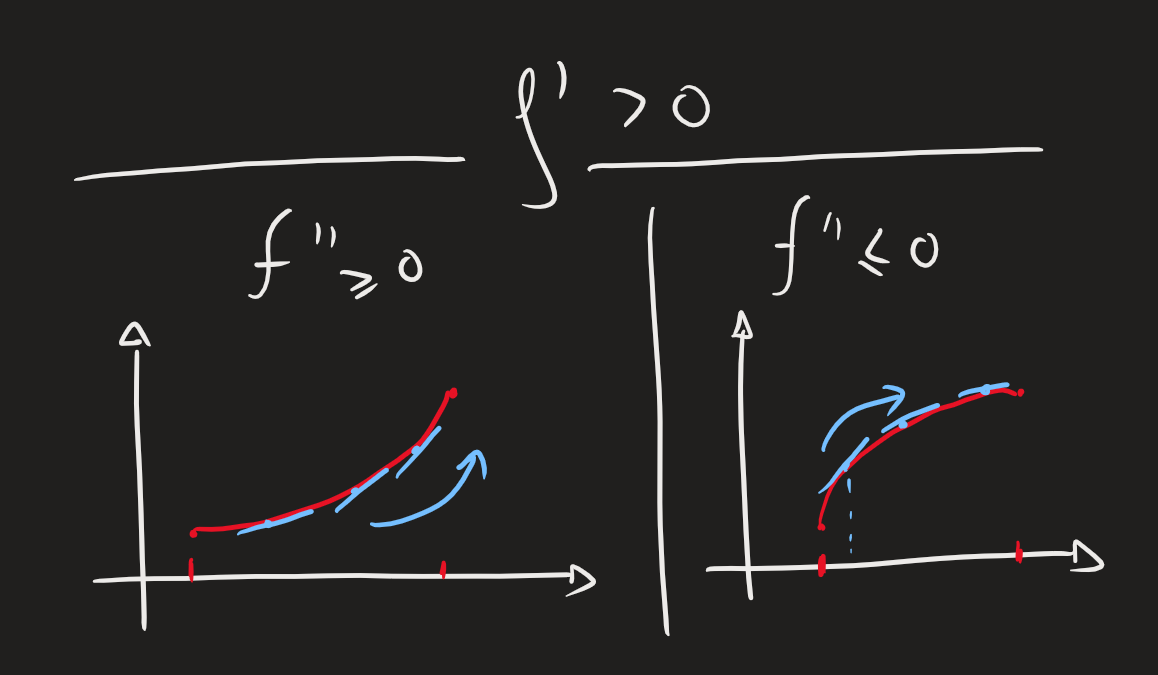 f' > 0
f'' ⩾ 0
f'' ≤ 0